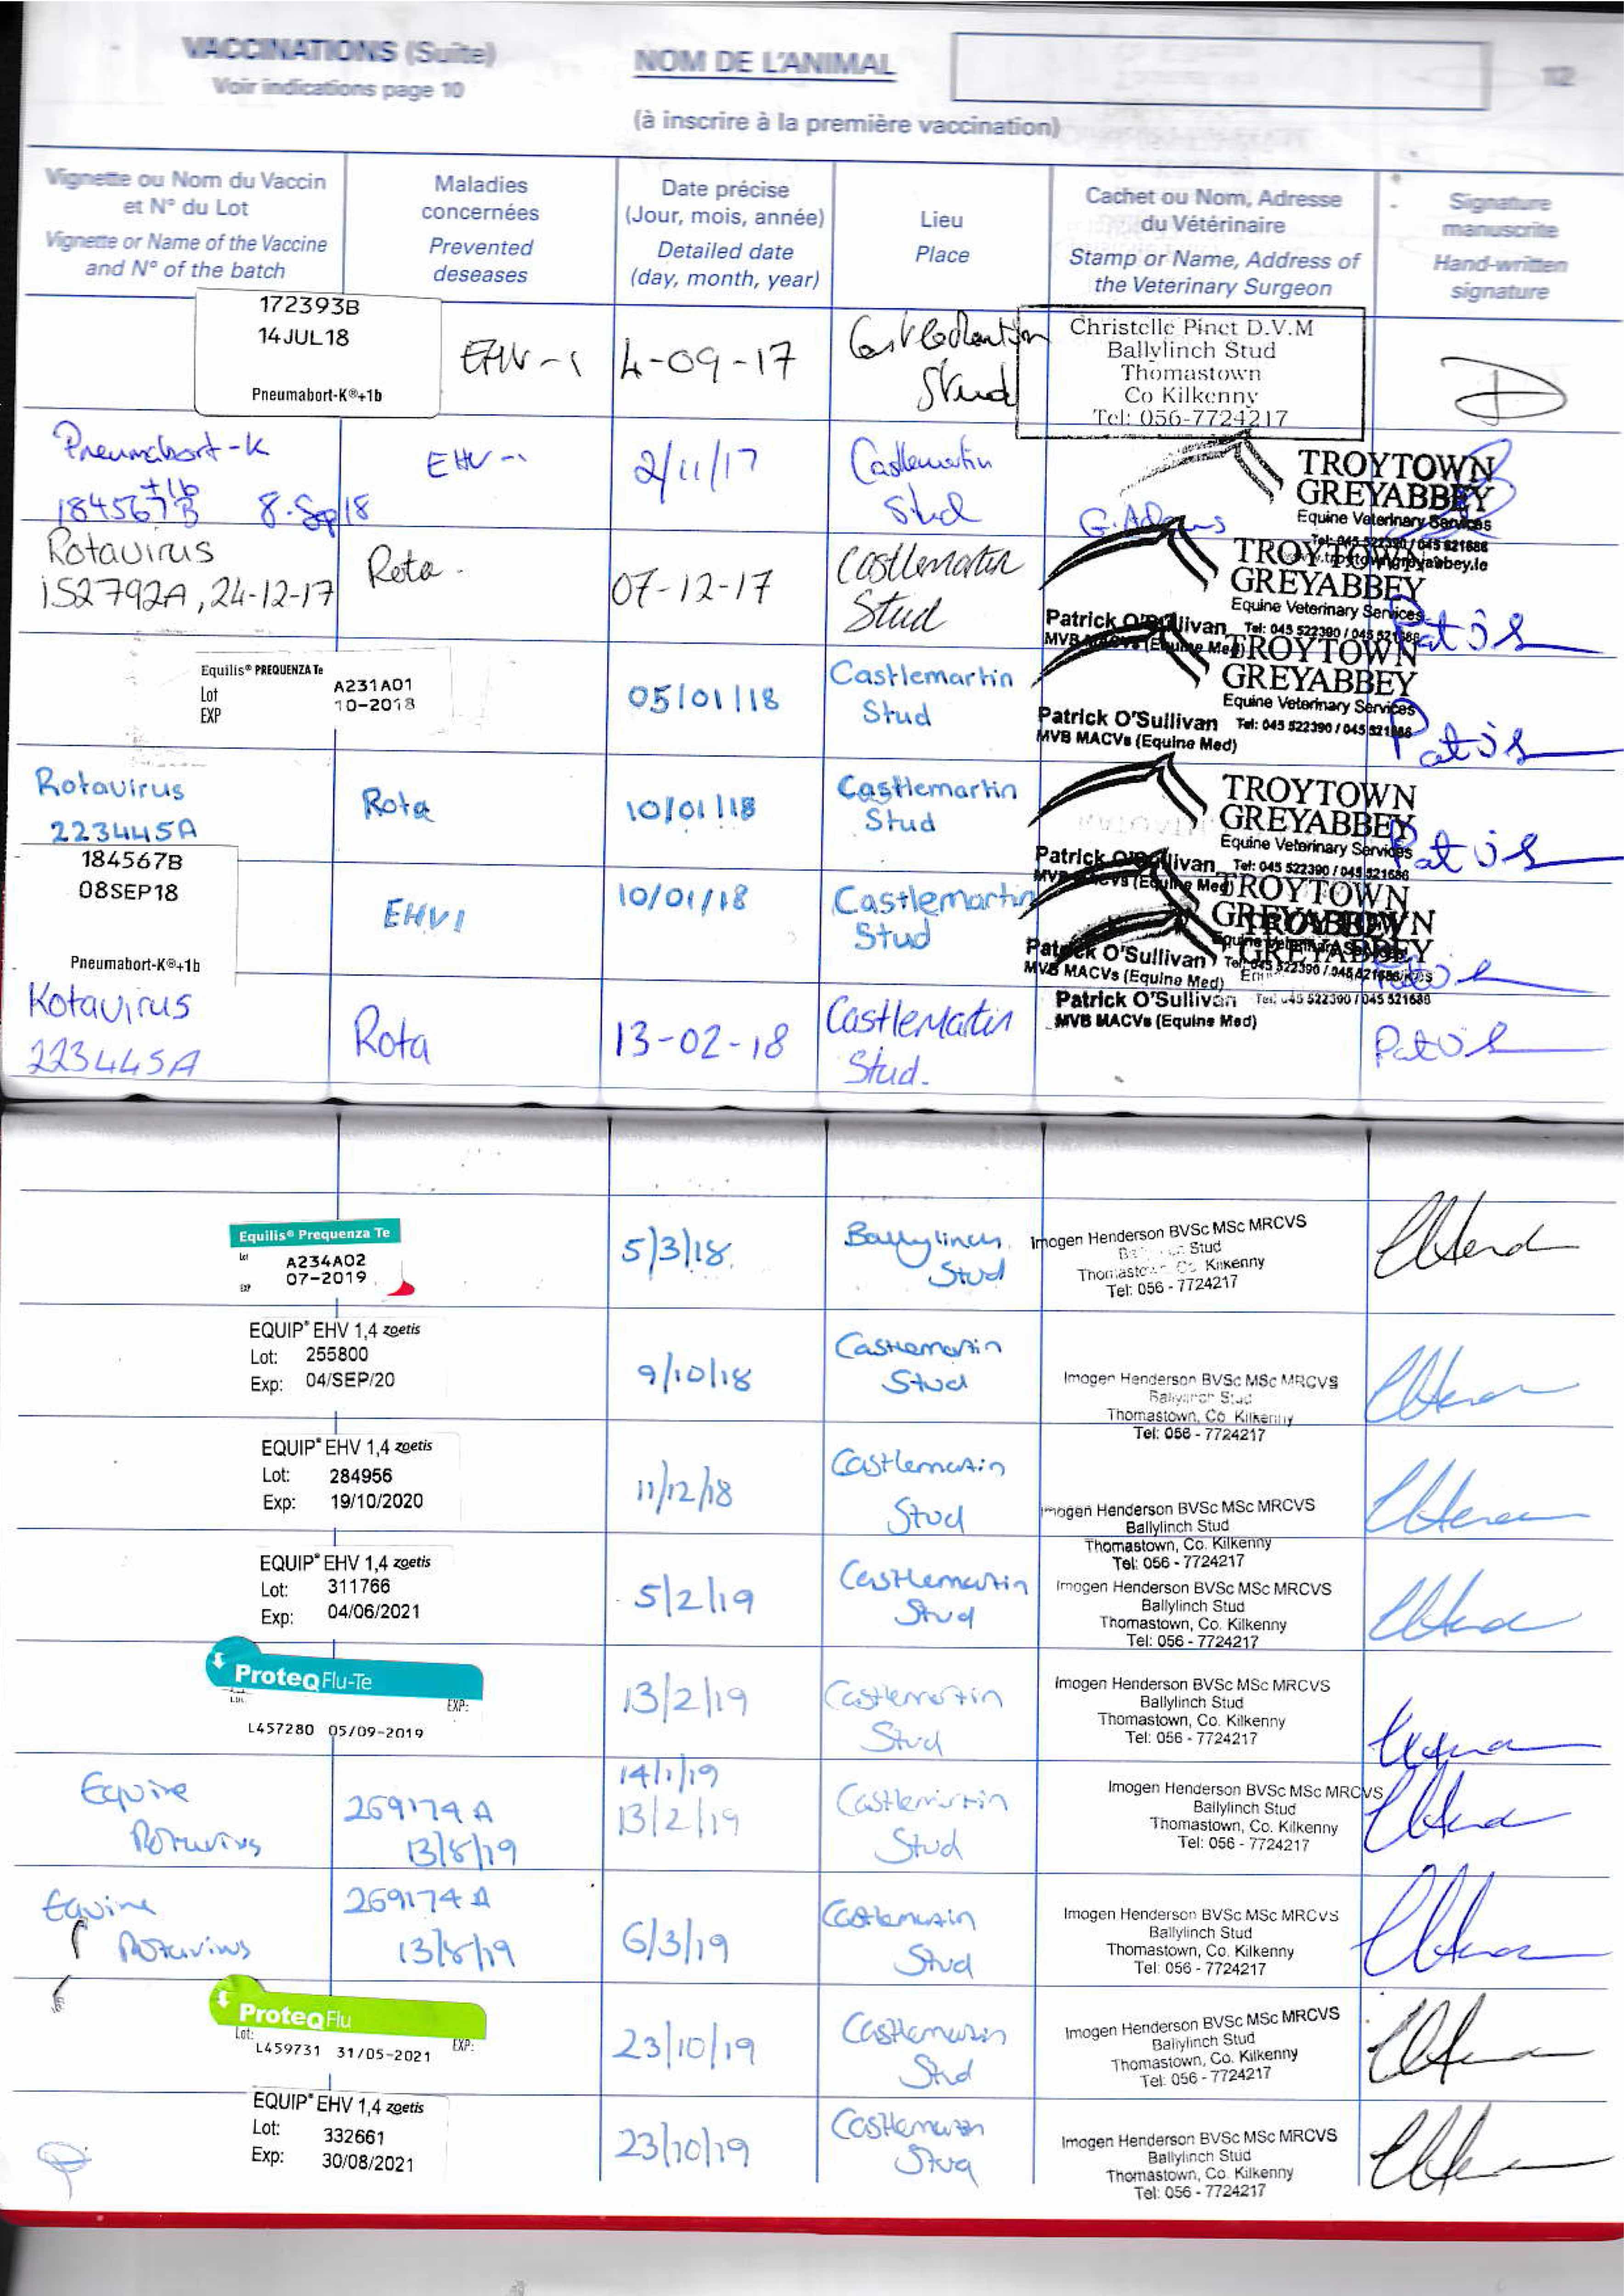 VACCINATIONS (Suite)
Voir indications page 10
NOM DE L'ANIMAL
(à inscrire à la première vaccination)
112
Vignette ou Nom du Vaccin
et N° du Lot
Vignette or Name of the Vaccine
and N° of the batch
Maladies
concernées
Prevented
deseases
Date précise
(Jour, mois, année)
Detailed date
(day, month, year)
Lieu
Place
Cachet ou Nom, Adresse
du Vétérinaire
Stamp or Name, Address of
the Veterinary Surgeon
Signature
manuscrite
Hand-written
signature
172393B
14JUL18
Pneumabort-K®+1b
EHV-1
4-09-17
Stud
Christelle Pinet D.V.M
Ballylinch Stud
Thomastown
Co Kilkenny
Tel: 056-7724217
Pneumabort-K
+1b
184567B 8.Sep18
EHV-1
2/11/17
Castlemartin
Stud
G. Adams
TROYTOWN
GREYABBEY
Equine Veterinary Services
Tel: 045 522390 / 045 521686
www.troytowngreyabbey.ie
Rotavirus
152792A, 24-12-17
Rota.
07-12-17
Castlemartin
Stud
TROYTOWN
GREYABBEY
Equine Veterinary Services
Patrick O'Sullivan Tel: 045 522390 / 045 521686
MVB MACVs (Equine Med)
Pat O'S
Equilis® PREQUENZA Te
Lot A231A01
EXP 10-2018
05/01/18
Castlemartin
Stud
TROYTOWN
GREYABBEY
Equine Veterinary Services
Patrick O'Sullivan Tel: 045 522390 / 045 521686
MVB MACVs (Equine Med)
Pat O'S
Rotavirus
223445A
Rota
10/01/18
Castlemartin
Stud
TROYTOWN
GREYABBEY
Equine Veterinary Services
Patrick O'Sullivan Tel: 045 522390 / 045 521686
MVB MACVs (Equine Med)
Pat O'S
184567B
08SEP18
Pneumabort-K®+1b
EHV1
10/01/18
Castlemartin
Stud
TROYTOWN
GREYABBEY
Equine Veterinary Services
Patrick O'Sullivan Tel: 045 522390 / 045 521686
MVB MACVs (Equine Med)
Rotavirus
223445A
Rota
13-02-18
Castlemartin
Stud.
TROYTOWN
GREYABBEY
Patrick O'Sullivan Tel: 045 522390 / 045 521686
MVB MACVs (Equine Med)
Pat O'S
Equilis® Prequenza Te
Lot A234A02
EXP 07-2019
5/3/18.
Ballylinch
Stud
Imogen Henderson BVSc MSc MRCVS
Ballylinch Stud
Thomastown, Co. Kilkenny
Tel: 056 - 7724217
EQUIP® EHV 1,4 zoetis
Lot: 255800
Exp: 04/SEP/20
9/10/18
Castlemartin
Stud
Imogen Henderson BVSc MSc MRCVS
Ballylinch Stud
Thomastown, Co. Kilkenny
Tel: 056 - 7724217
EQUIP® EHV 1,4 zoetis
Lot: 284956
Exp: 19/10/2020
11/12/18
Castlemartin
Stud
Imogen Henderson BVSc MSc MRCVS
Ballylinch Stud
Thomastown, Co. Kilkenny
Tel: 056 - 7724217
EQUIP® EHV 1,4 zoetis
Lot: 311766
Exp: 04/06/2021
5/2/19
Castlemartin
Stud
Imogen Henderson BVSc MSc MRCVS
Ballylinch Stud
Thomastown, Co. Kilkenny
Tel: 056 - 7724217
ProteqFlu-Te
Lot: EXP:
L457280 05/09-2019
13/2/19
Castlemartin
Stud
Imogen Henderson BVSc MSc MRCVS
Ballylinch Stud
Thomastown, Co. Kilkenny
Tel: 056 - 7724217
Equine
Rotavirus
269174A
13/8/19
14/1/19
13/2/19
Castlemartin
Stud
Imogen Henderson BVSc MSc MRCVS
Ballylinch Stud
Thomastown, Co. Kilkenny
Tel: 056 - 7724217
Equine
Rotavirus
269174A
13/8/19
6/3/19
Castlemartin
Stud
Imogen Henderson BVSc MSc MRCVS
Ballylinch Stud
Thomastown, Co. Kilkenny
Tel: 056 - 7724217
ProteqFlu
Lot: EXP:
L459731 31/05-2021
23/10/19
Castlemartin
Stud
Imogen Henderson BVSc MSc MRCVS
Ballylinch Stud
Thomastown, Co. Kilkenny
Tel: 056 - 7724217
EQUIP® EHV 1,4 zoetis
Lot: 332661
Exp: 30/08/2021
23/10/19
Castlemartin
Stud
Imogen Henderson BVSc MSc MRCVS
Ballylinch Stud
Thomastown, Co. Kilkenny
Tel: 056 - 7724217